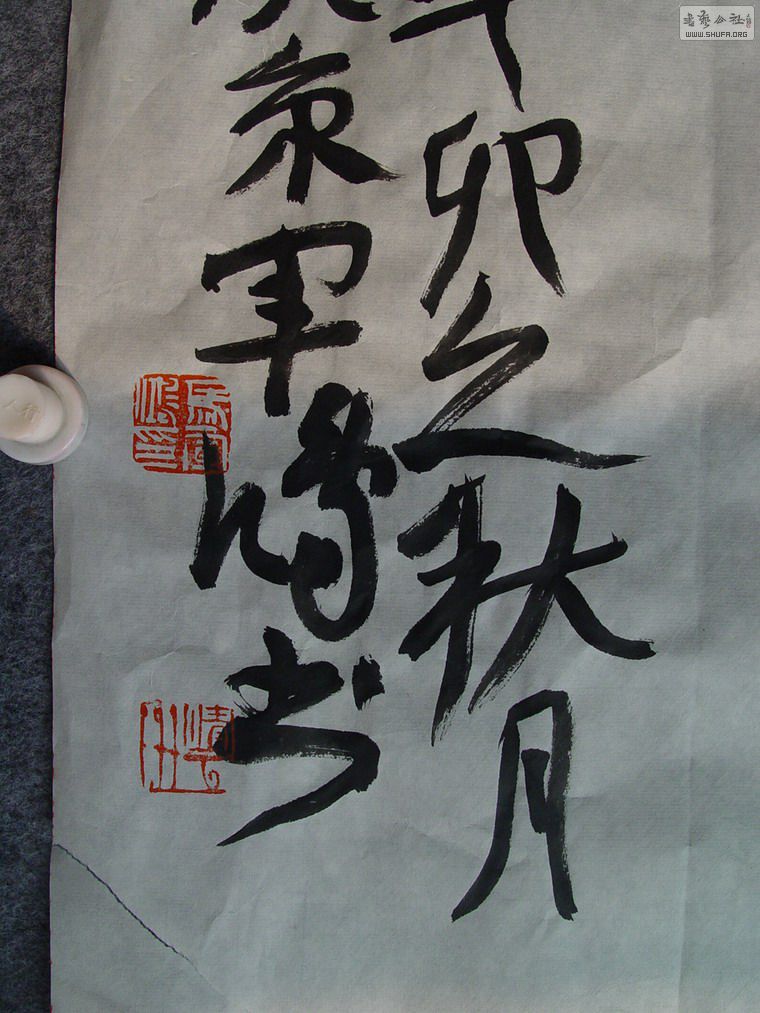 辛卯之秋月
京军偶书
書藝公社
WWW.SHUFA.ORG